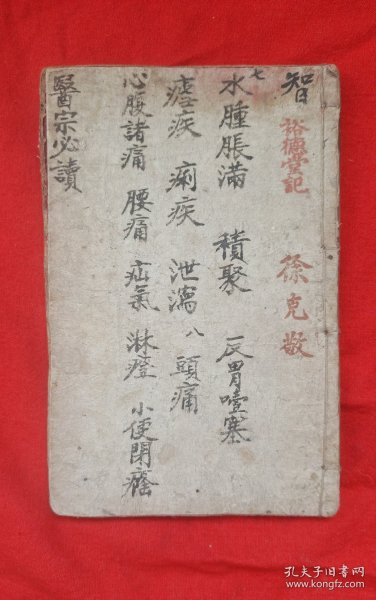 智
裕德堂記 徐克敬
七
水腫脹滿 積聚 反胃噎塞
瘧疾 痢疾 泄瀉 八 頭痛
心腹諸痛 腰痛 疝氣 淋癃 小便閉癃
醫宗必讀
孔夫子旧书网